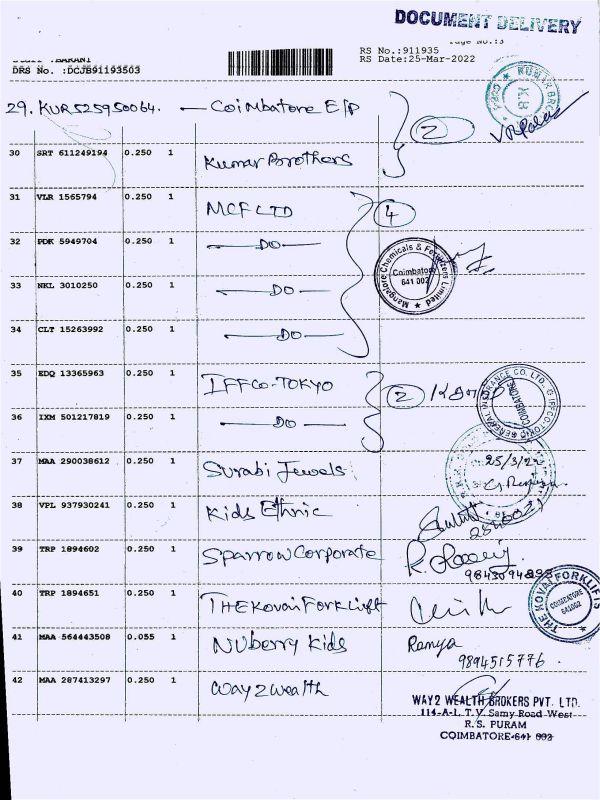 DOCUMENT DELIVERY
Page No.:3
RS No.:911935
RS Date:25-Mar-2022
DRS No. :DCJB91193503
29. KUR525950064. — Coimbatore E/P
2
30 SRT 611249194 0.250 1 Kumar Brothers
31 VLR 1565794 0.250 1 MCF LTD
4
32 PDK 5949704 0.250 1 —DO—
Mangalore Chemicals & Fertilizers Limited
Coimbatore
641 002
33 NKL 3010250 0.250 1 —DO—
34 CLT 15263992 0.250 1 —DO—
35 EDQ 13365963 0.250 1 IFFCO-TOKYO
2
COIMBATORE
36 IXM 501217819 0.250 1 —DO—
37 MAA 290038612 0.250 1 Surabi Jewels
25/3/22
38 VPL 937930241 0.250 1 Kids Ethnic
39 TRP 1894602 0.250 1 Sparrow Corporate
40 TRP 1894651 0.250 1 THE Kovai Forklift
THE KOVAI FORKLIFTS
COIMBATORE
641002
41 MAA 564443508 0.055 1 NUberry Kids Ramya
9894515776.
42 MAA 287413297 0.250 1 Way2Wealth
WAY2 WEALTH BROKERS PVT. LTD.
114-A-1, T.V. Samy Road West
R.S. PURAM
COIMBATORE-641 002